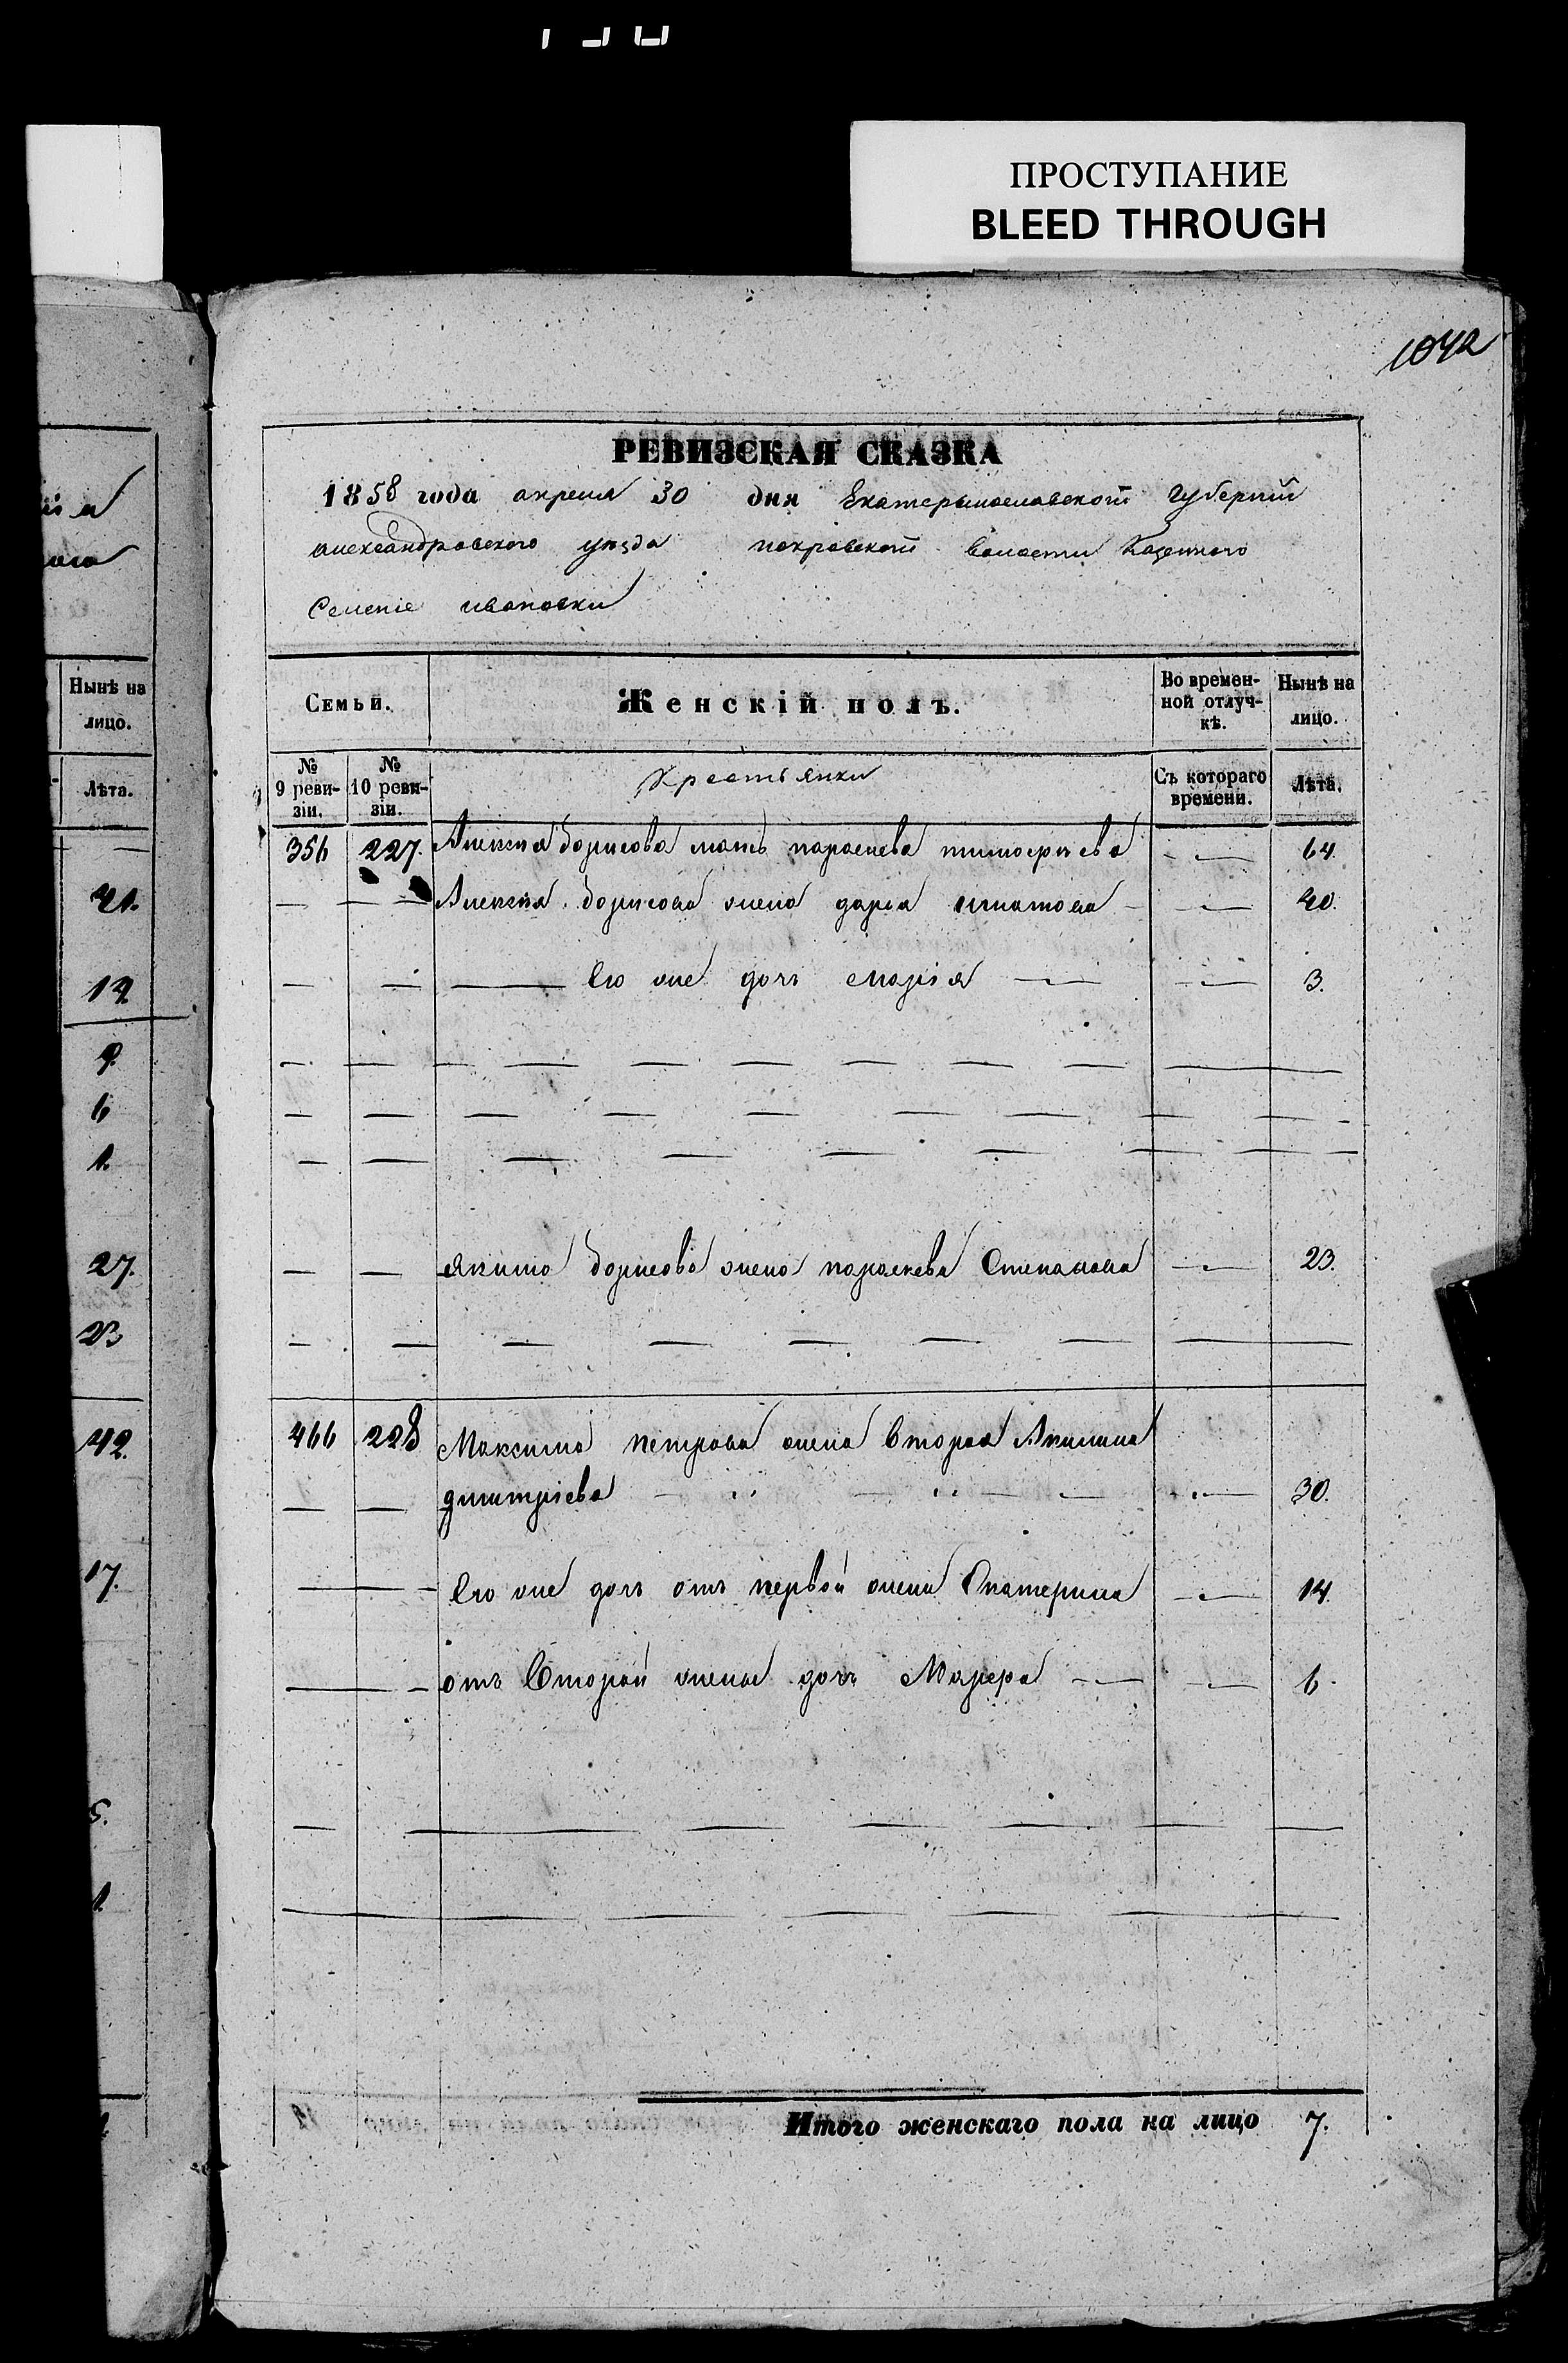 ПРОСТУПАНИЕ
BLEED THROUGH
1042
РЕВИЗСКАЯ СКАЗКА
1858 года апреля 30 дня Екатеринославской Губернии
александровского уезда покровской волости Казенного
Селение ивановки
Семьи. Женскій полъ. Во временной отлучкѣ. Нынѣ на лицо.
№ 9 ревизіи. № 10 ревизіи. Крестьянки Съ котораго времени. Лѣта.
356 227. Алексея борисова мать параскева тимофеева 64.
Алексея борисова жена дарья игнатова 40.
его же дочь мария 3.
якима борисова жена параскева Степанова 23.
466 228 Максима петрова жена вторая Акилина
дмитріева 30.
его же дочь отъ первой жены Екатерина 14.
отъ второй жены дочь 6.
Итого женскаго пола на лицо 7.
Нынѣ на
лицо.
Лѣта.
41.
9.
6
1.
27.
23
42.
17.
5.
1.